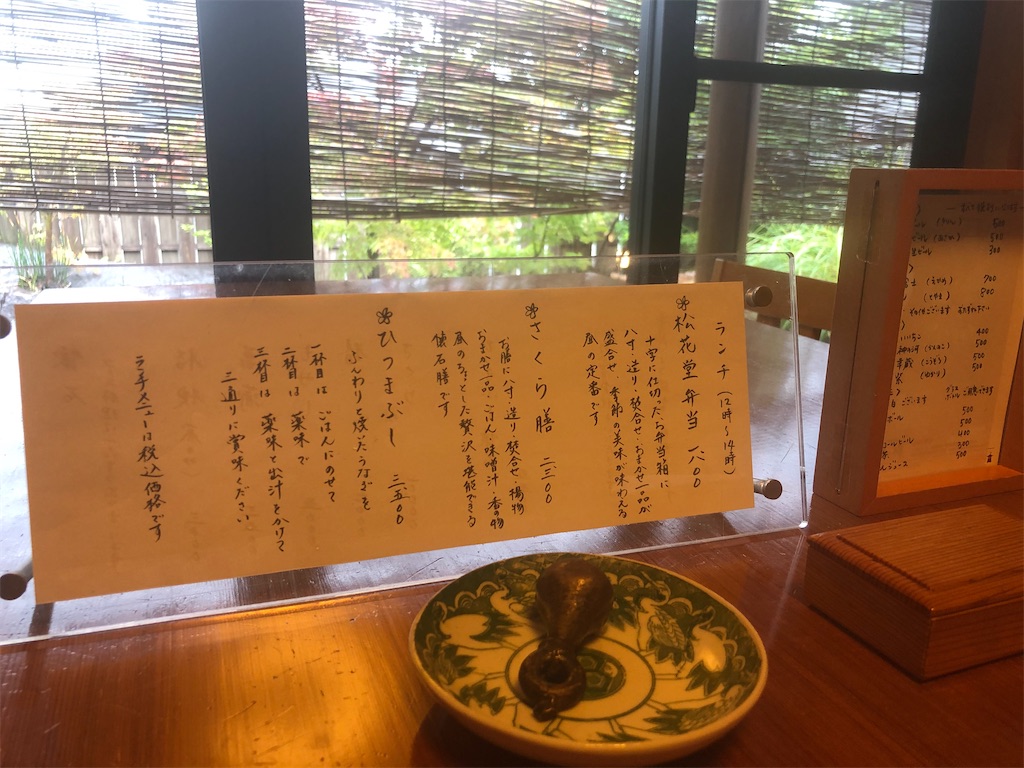 ランチ（12時〜14時）
松花堂弁当 一八〇〇
十字に仕切ったお弁当箱に
八寸・造り・焚合せ・おまかせ一品が
盛合せ、季節の美味が味わえる
風の定番です
さくら膳 二三〇〇
お膳に八寸・造り・焚合せ・揚物
おまかせ一品・ごはん・味噌汁・香の物
風のちょっとした贅沢を堪能できる
懐石膳です
ひつまぶし 三五〇〇
ふんわりと焼いたうなぎを
一杯目は ごはんにのせて
二杯目は 薬味で
三杯目は 薬味と出汁をかけて
三通りに賞味ください
ランチメニューは税込価格です
500
500
300
700
800
いいちこ 400
500
500
500
500
500
400
300
500